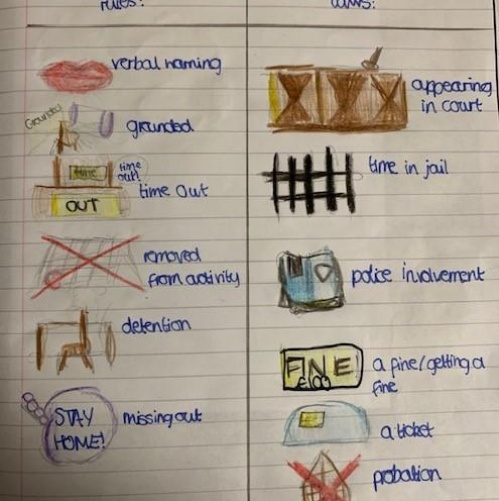 rules?
laws?
verbal warning
Grounded
grounded
time
time
out!
OUT
time Out
removed
from activity
detention
STAY
HOME!
missing out
appearing
in court
time in jail
police involvement
FINE
£100
a fine/getting a
fine
a ticket
probation